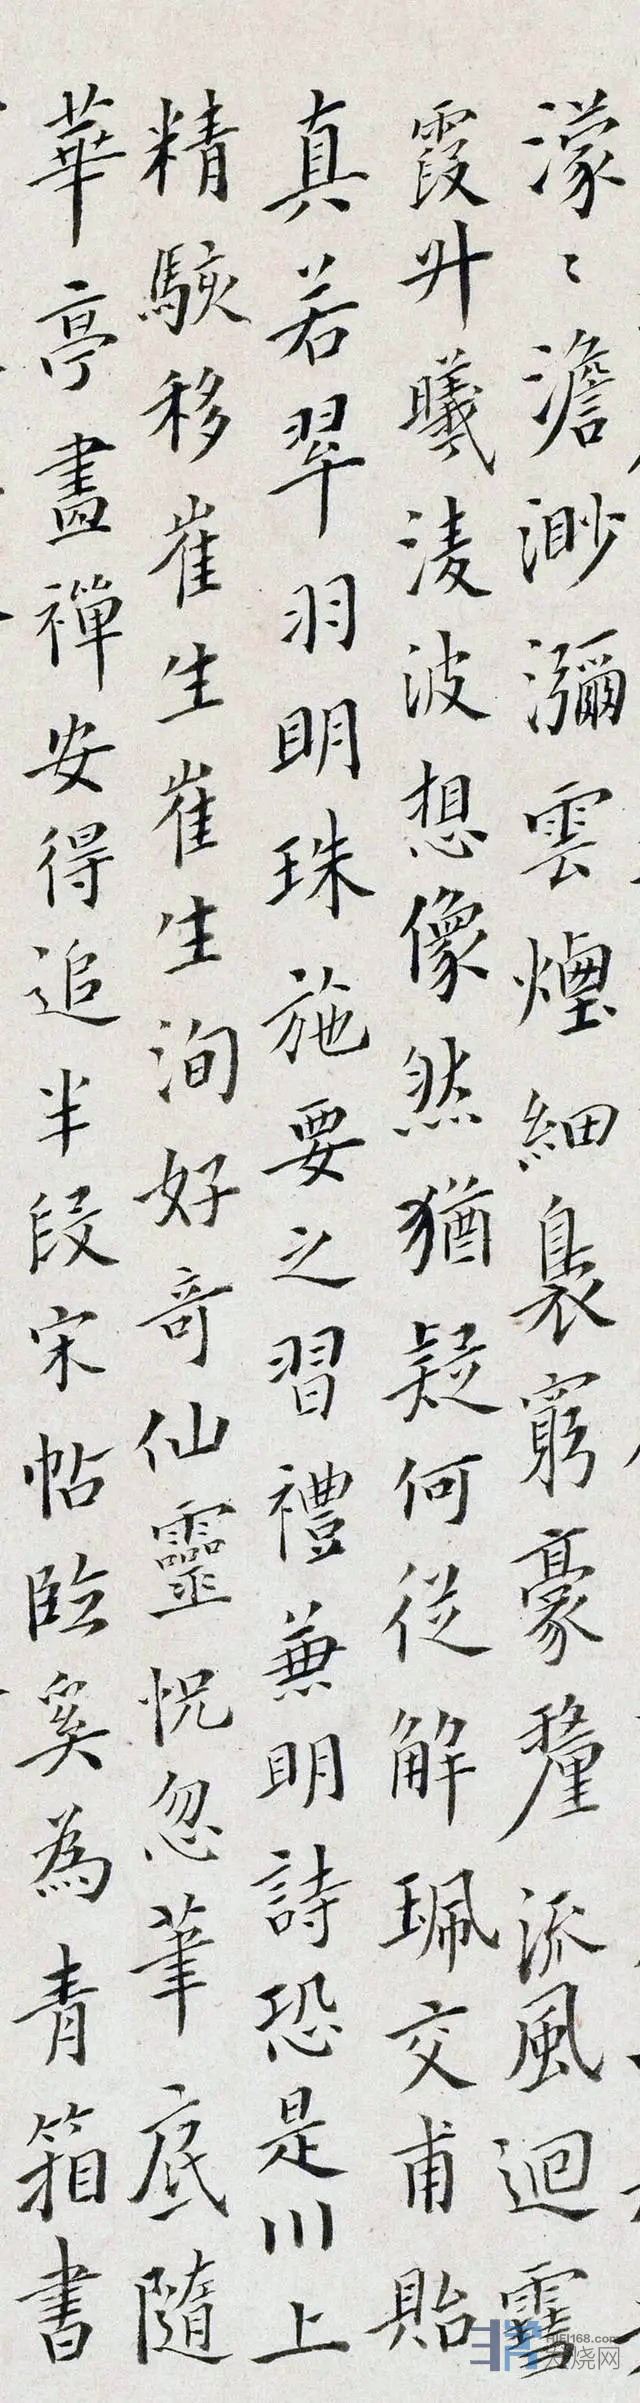 濛〻澹渺瀰雲煙細裊窮豪釐流風迴雪
霞升曦淩波想像然猶疑何從解珮交甫貽
真若翠羽明珠施要之習禮兼明詩恐是川上
精駭移崔生崔生洵好奇仙靈怳忽筆底隨
華亭畫禪安得追半段宋帖臨奚為青箱書
HIFI168.com
发烧网